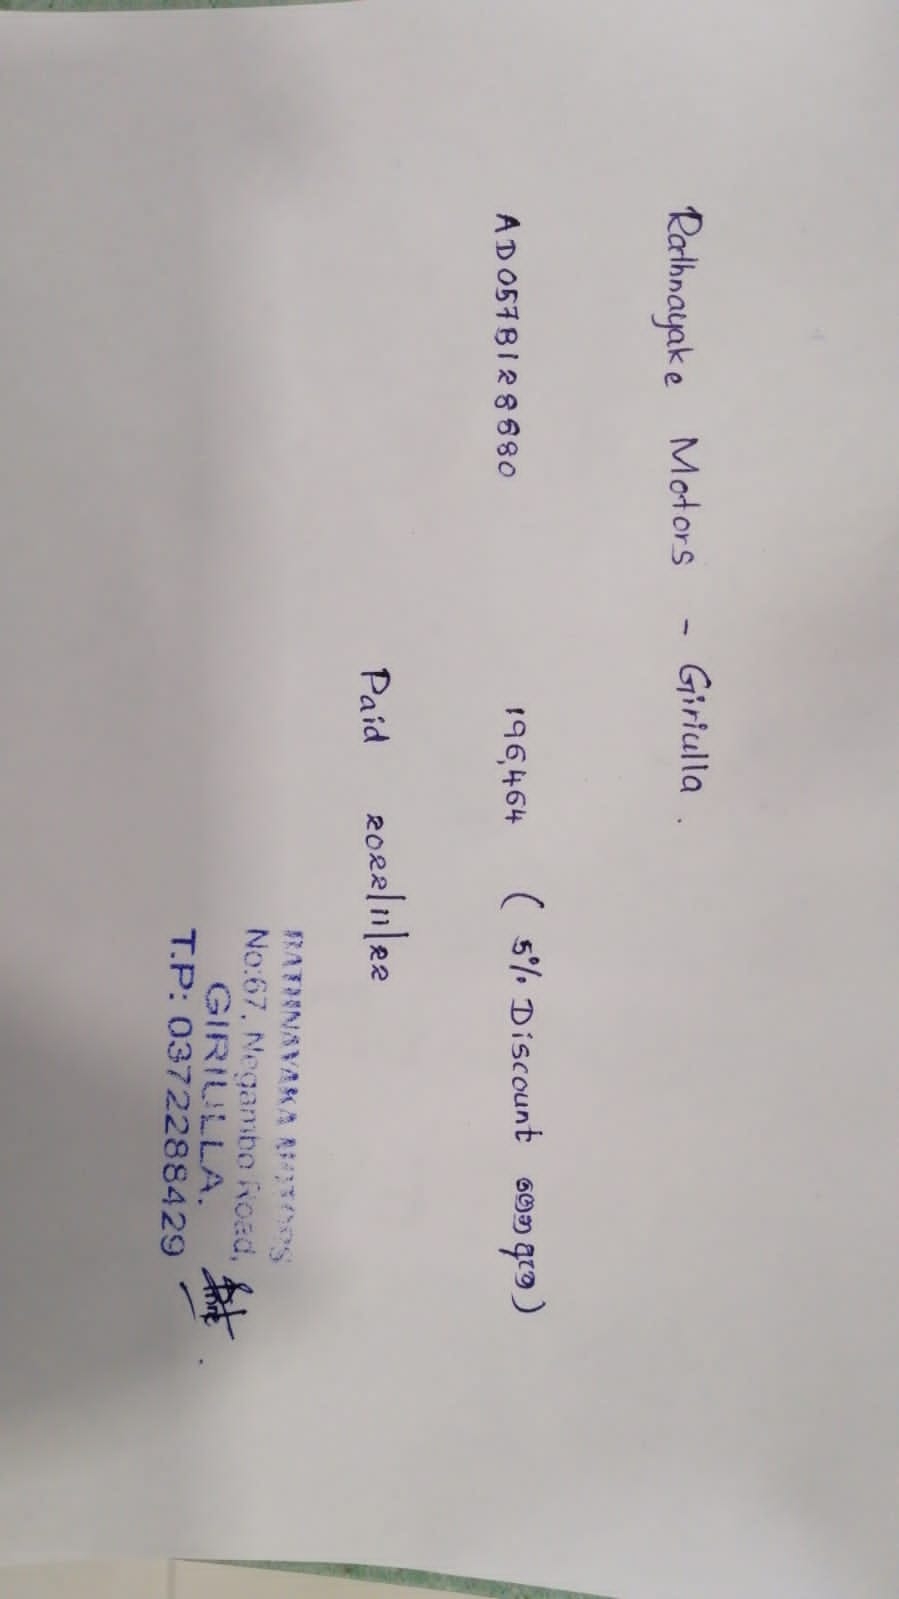 Rathnayake Motors - Giriulla.
AD057B128680 196,464 (5% Discount
Paid 2022/11/22
RATHNAYAKA MOTORS
No:67, Negambo Road,
GIRIULLA.
T.P: 0372288429